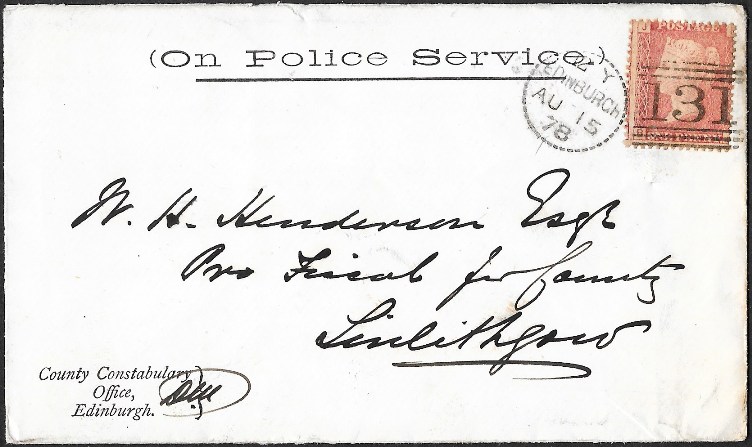 (On Police Service.)
EDINBURGH
AU 15
78
POSTAGE
131
W. H. Henderson Esqr
Pro Fiscal for County
Linlithgow
County Constabulary
Office,
Edinburgh.